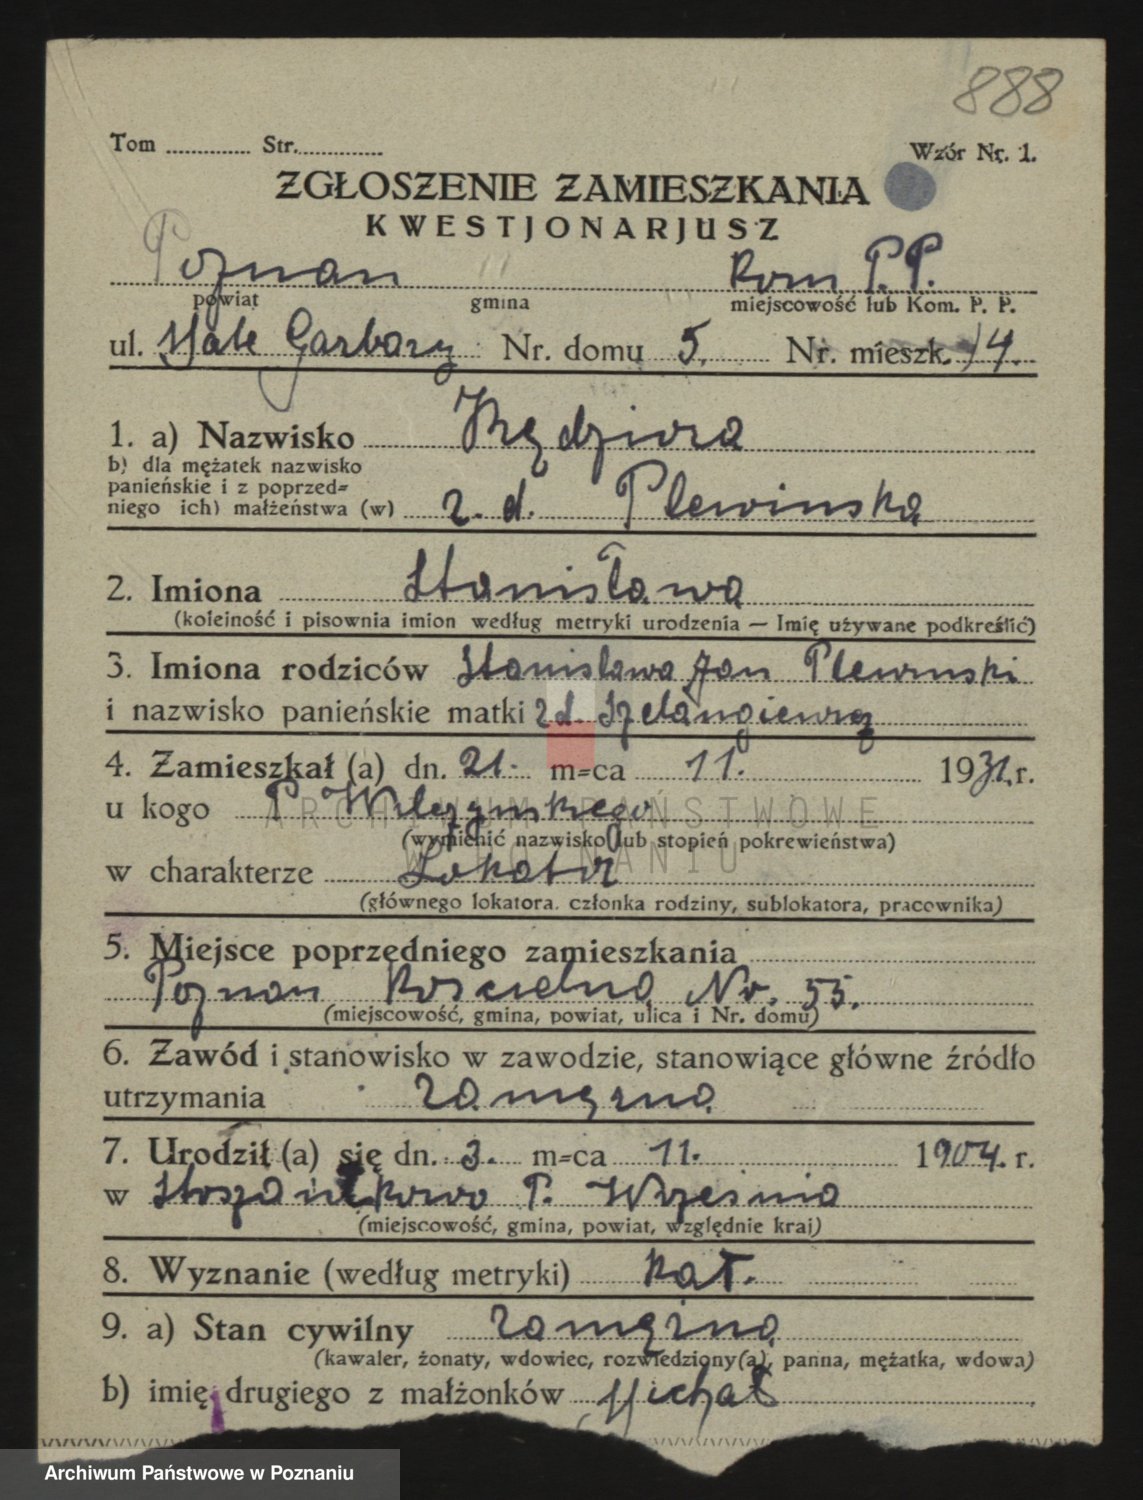 888
Tom ............ Str. ............
Wzór Nr. 1.
ZGŁOSZENIE ZAMIESZKANIA
KWESTJONARJUSZ
Poznan Kom P.P.
powiat gmina miejscowość lub Kom. P. P.
ul. Małe Garbary Nr. domu 5. Nr. mieszk. 14.
1. a) Nazwisko Kędziora
b) dla mężatek nazwisko
panieńskie i z poprzed=
niego ich) małżeństwa (w) z. d. Plewinska
2. Imiona Stanisława
(kolejność i pisownia imion według metryki urodzenia — Imię używane podkreślić)
3. Imiona rodziców Stanisława Jan Plewinski
i nazwisko panieńskie matki z d.
4. Zamieszkał (a) dn. 21. m=ca 11. 1931. r.
u kogo P. Wilczynskiego
(wymienić nazwisko lub stopień pokrewieństwa)
ARCHIWUM PAŃSTWOWE
W POZNANIU
w charakterze Lokator
(głównego lokatora, członka rodziny, sublokatora, pracownika)
5. Miejsce poprzedniego zamieszkania
Poznan Koscielna Nr. 55.
(miejscowość, gmina, powiat, ulica i Nr. domu)
6. Zawód i stanowisko w zawodzie, stanowiące główne źródło
utrzymania zamęzna
7. Urodził (a) się dn. 3. m=ca 11. 1904. r.
w P. Wrzesnia
(miejscowość, gmina, powiat, względnie kraj)
8. Wyznanie (według metryki) kat.
9. a) Stan cywilny zamęzna
(kawaler, żonaty, wdowiec, rozwiedziony(a), panna, mężatka, wdowa)
b) imię drugiego z małżonków Michał
Archiwum Państwowe w Poznaniu